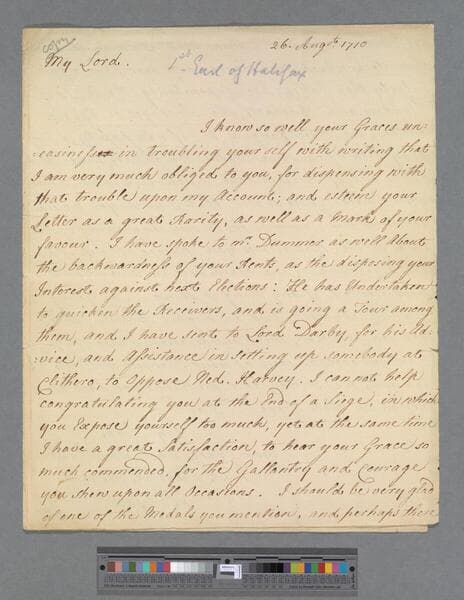 copy
26. Augst. 1710
My Lord.
1st Earl of Halifax
I know so well your Graces un-
:easiness in troubling your self with writing that
I am very much obliged to you, for dispensing with
that trouble upon my Account; and esteem your
Letter as a great Rarity, as well as a Mark of your
favour. I have spoke to Mr. Dummer as well about
the backwardness of your Rents, as the disposing your
Interest against next Elections: He has Undertaken
to quicken the Receivers, and is going a Tour among
them, and I have sent to Lord Darby, for his Ad-
:vice, and Assistance in setting up somebody at
Clithero, to Oppose Ned. Harvey. I cannot help
congratulating you at the End of a Siege, in which
you Expose yourself too much, yet at the same time
I have a great Satisfaction, to hear your Grace so
much commended, for the Gallantry and Courage
you shew upon all Occasions. I should be very glad
of one of the Medals you mention, and perhaps there